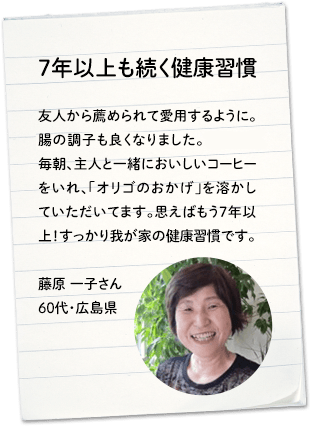 7年以上も続く健康習慣
友人から薦められて愛用するように。
腸の調子も良くなりました。
毎朝、主人と一緒においしいコーヒー
をいれ、「オリゴのおかげ」を溶かし
ていただいてます。思えばもう7年以
上！すっかり我が家の健康習慣です。
藤原 一子さん
60代・広島県